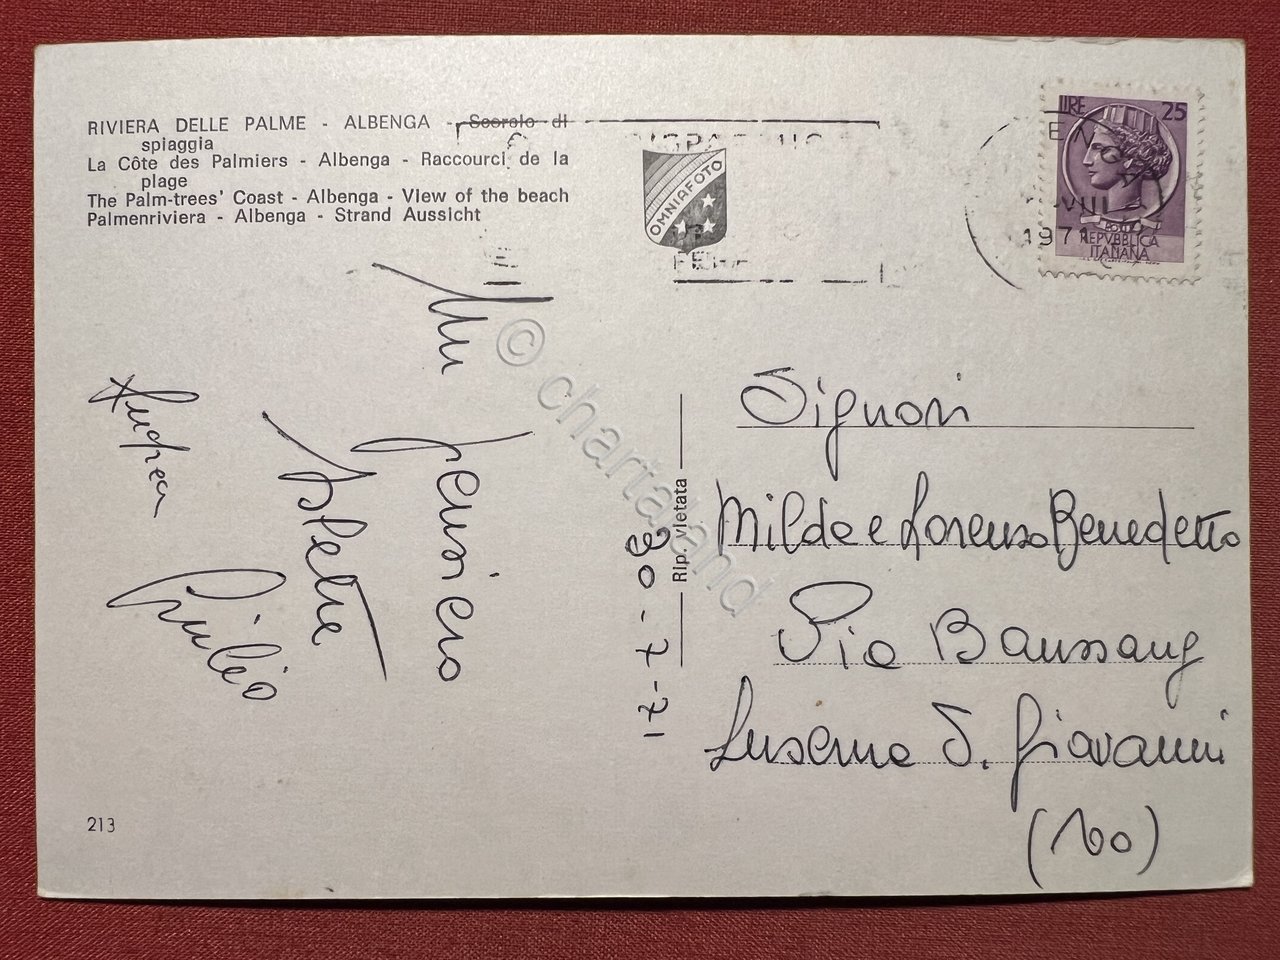 RIVIERA DELLE PALME - ALBENGA - Scorcio di
spiaggia
La Côte des Palmiers - Albenga - Raccourci de la
plage
The Palm-trees' Coast - Albenga - View of the beach
Palmenriviera - Albenga - Strand Aussicht
OMNIAFOTO
LIRE 25
1971
POSTE
REPVBBLICA
ITALIANA
Un pensiero
Andrea
Giulio
30-7-71
Rip. vietata
Signori
Milda e Lorenzo Benedetto
Via
Luserna S. Giovanni
(To)
213
© chartaland